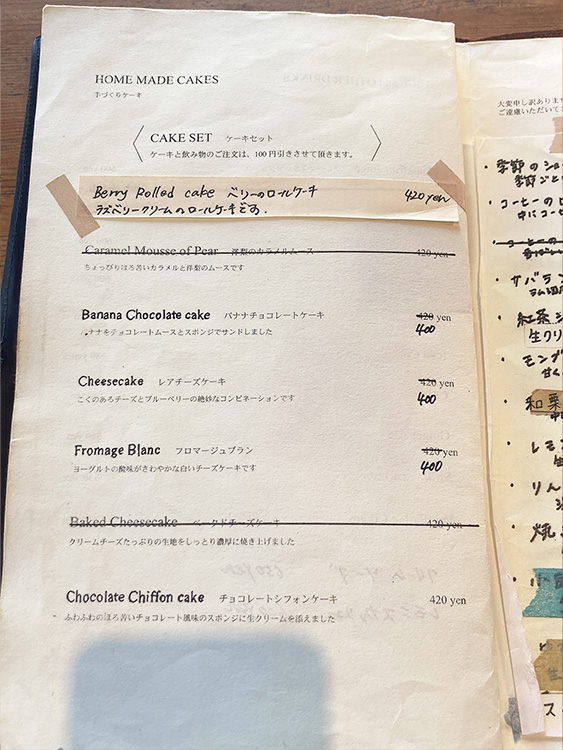 HOME MADE CAKES
手づくりケーキ
CAKE SET ケーキセット
ケーキと飲み物のご注文は、100円引きさせて頂きます。
Berry Rolled cake ベリーのロールケーキ 420 yen
ラズベリークリームのロールケーキです.
Caramel Mousse of Pear 洋梨のカラメルムース 420 yen
ちょっぴりほろ苦いカラメルと洋梨のムースです
Banana Chocolate cake バナナチョコレートケーキ 420 yen
バナナをチョコレートムースとスポンジでサンドしました 400
Cheesecake レアチーズケーキ 420 yen
こくのあるチーズとブルーベリーの絶妙なコンビネーションです 400
Fromage Blanc フロマージュブラン 420 yen
ヨーグルトの酸味がさわやかな白いチーズケーキです 400
Baked Cheesecake ベークドチーズケーキ 420 yen
クリームチーズたっぷりの生地をしっとり濃厚に焼き上げました
Chocolate Chiffon cake チョコレートシフォンケーキ 420 yen
ふわふわのほろ苦いチョコレート風味のスポンジに生クリームを添えました
大変申し訳ありませ
ご遠慮いただいて
・季節のショ
季節ごと
・コーヒーのロ
中にコーヒ
・コーヒーの
・サバラン
ラム酒
紅茶シ
生クリ
・モンブ
甘く
和栗
・レモ
・りん
・焼き